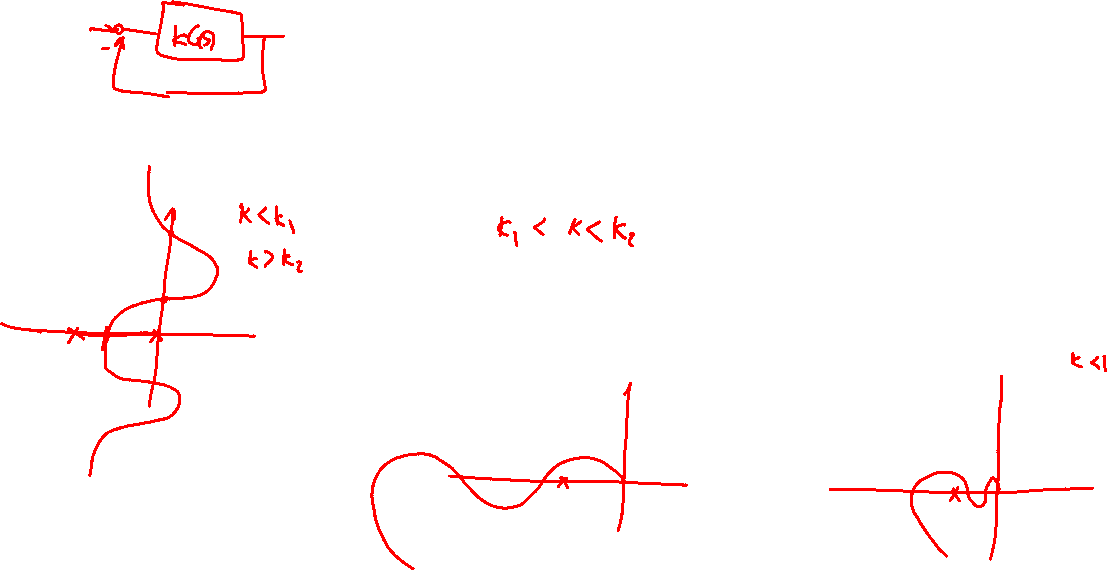 kG(s)
-
k<k₁
k>k₂
k₁ < k<k₂
k<1